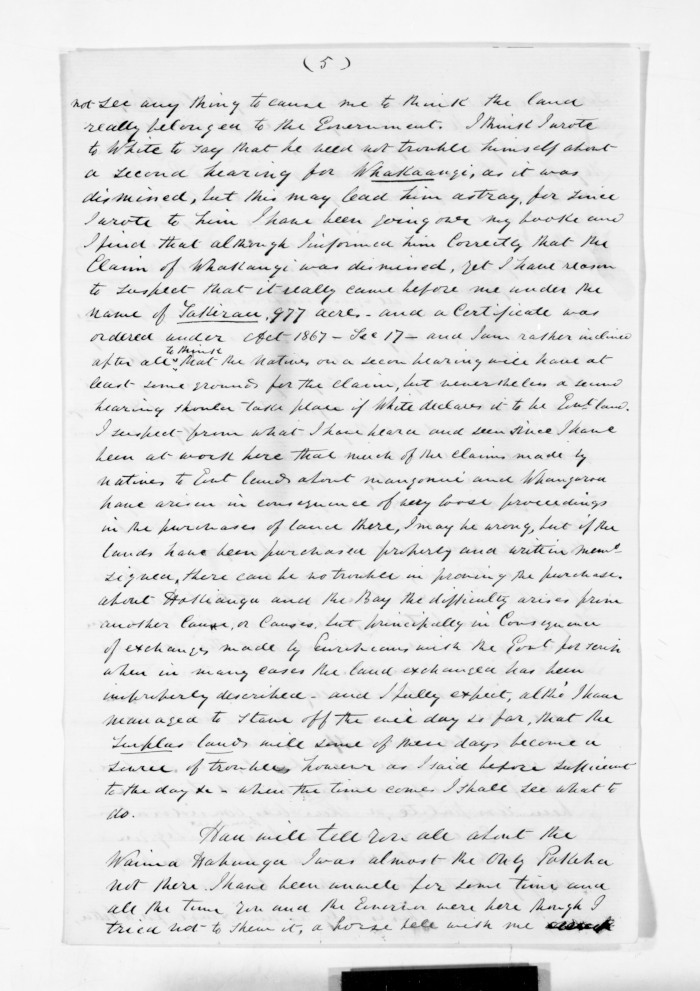 (5)
not see any thing to cause me to think the land
really belonged to the Government. I think I wrote
to White to say that he need not trouble himself about
a second hearing for Whakaangi, as it was
dismissed, but this may lead him astray, for since
I wrote to him I have been going over my books and
I find that although I informed him correctly that the
Claim of Whakangi was dismissed, yet I have reason
to suspect that it really came before me under the
name of Takerau, 977 acres - and a Certificate was
ordered under Act 1867 - Sec 17 - and I am rather inclined
to think
after all, that the Natives on a secon hearing will have at
least some grounds for the claim, but nevertheless a second
hearing should take place if White declares it to be Govt land.
I suspect from what I have heard and seen since I have
been at work here that much of the claims made by
Natives to Govt lands about mangonui and Whangaroa
have arisen in consequence of very loose proceedings
in the purchases of land there, I may be wrong, but if the
lands have been purchased properly and written memo
signed, there can be no trouble in proving the purchase.
about Hokianga and the Bay the difficulty arises from
another Cause, or Causes, but principally in Consequence
of exchanges made by Europeans with the Govt for scrip
when in many cases the land exchanged has been
improperly described - and I fully expect, altho' I have
managed to stave off the evil day so far, that the
Surplus lands will some of these days become a
source of trouble, however as I said before sufficient
to the day &c - when the time comes I shall see what to
do.
Hau will tell you all about the
Waima Hahunga I was almost the only Pakeha
not there. I have been unwell for some time and
all the time you and the Governor were here though I
tried not to shew it, a horse fell with me